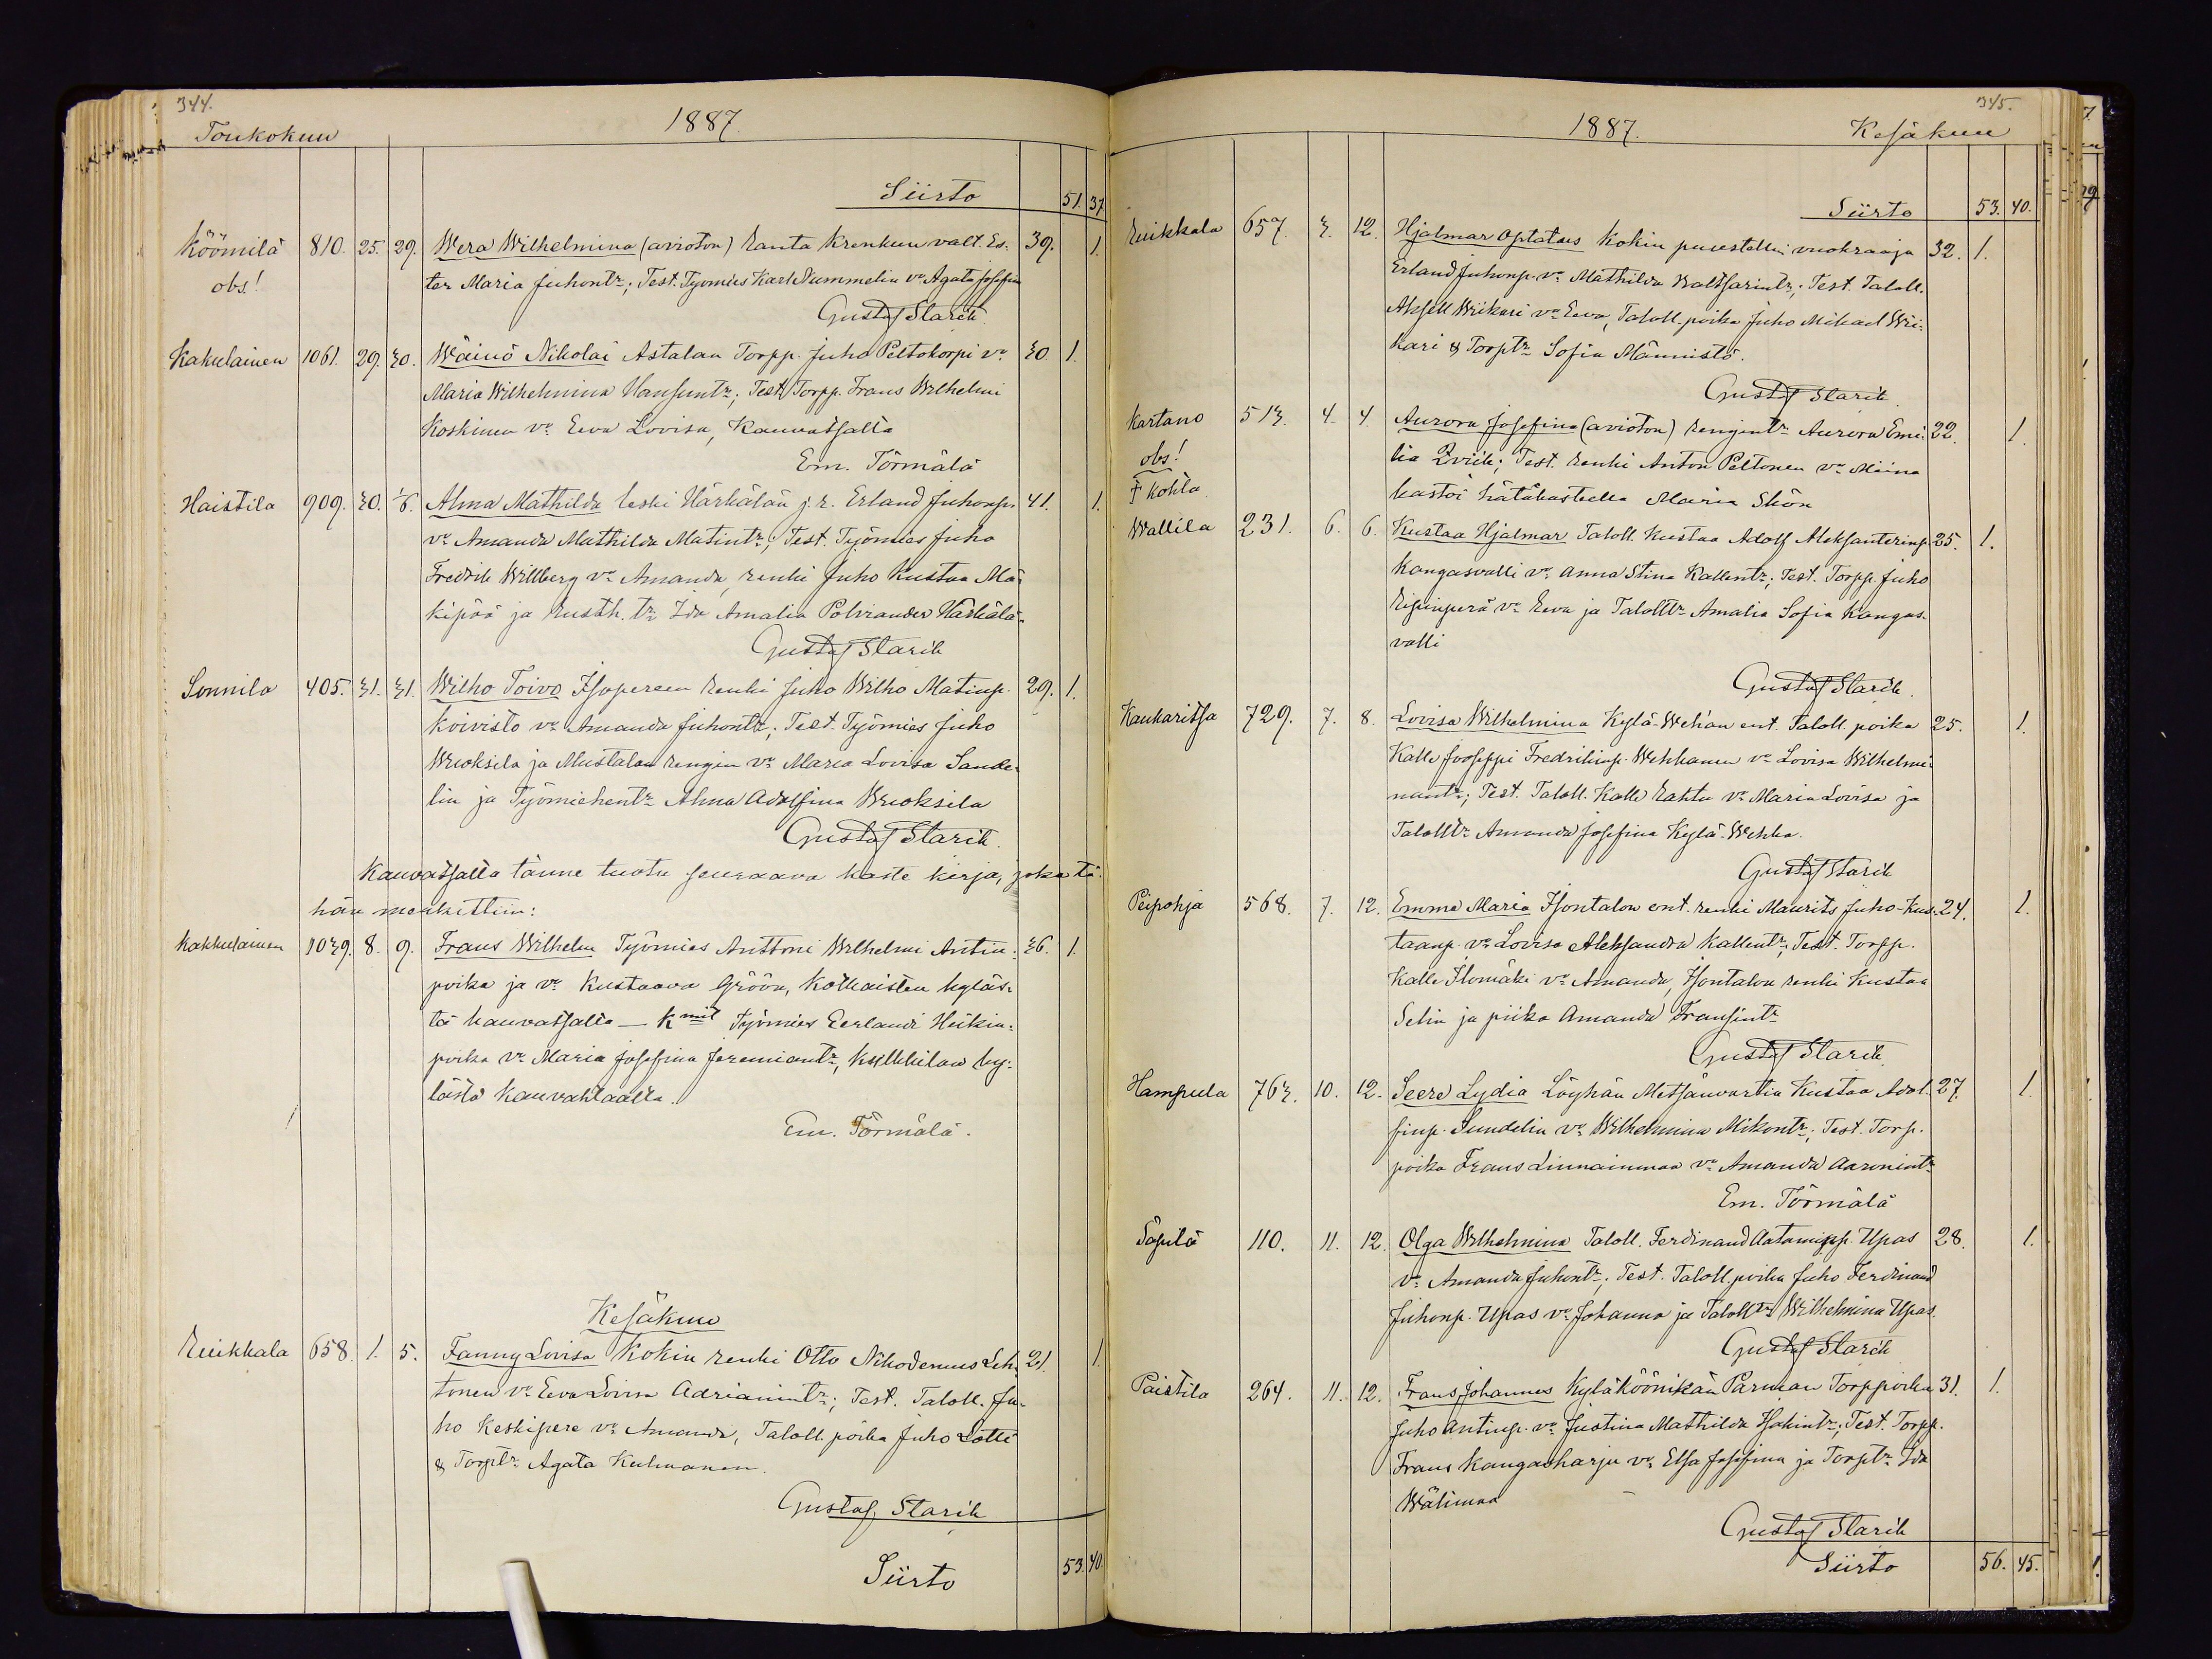 344.
Toukokuu
1887
Siirto 51. 37
Köömilä 810. 25. 29. Wera Wilhelmina (avioton) Ranta Krenkun valt. Es- 39. 1.
obs! ter Maria Juhontr; Test. Työmies Karl Nummelin vo Agata Josefina
Gustaf Starck
Kakulainen 1061. 29. 30. Wäinö Nikolai Astalan Torpp. Juho Peltokorpi vo 30. 1.
Maria Wilhelmina Hansuntr; Test. Torpp. Frans Wilhelmi
Koskinen vo Eeva Lovisa, Kauvatsalla
Em. Törmälä
Haistila 909. 30. 1/6. Alma Mathilda leski Härkälän j.r. Erland Juhonp. 41. 1.
vo Amanda Mathilda Matintr; Test. Työmies Juho
Fredrik Willberg vo Amanda, renki Juho Kustaa Mä-
kipää ja Rusth. tr Ida Amalia Polviander Härkälä
Gustaf Starck
Sonnila 405. 31. 31. Wilho Toivo Isopereen renki Juho Wilho Matinp. 29. 1.
Koivisto vo Amanda Juhontr; Test. Työmies Juho
Wuoksila ja Mustalan rengin vo Maria Lovisa Sande-
lin ja Työmiehentr Alma Adolfina Wuoksila
Gustaf Starck.
Kauvatsalla tänne tuotu seuraava kaste kirja, joka tä-
hän merkittiin:
Kakkulainen 1039. 8. 9. Frans Wilhelm Työmies Anttoni Wilhelmi Antin- 36. 1.
poika ja vo Kustaava Gröön, kyläs-
tä Kauvatsalla — Kmit Työmies Eerlandi Heikin-
poika vo Maria Josefina Jeremiantr, ky-
lästä Kauvahtaalla.
Em. Törmälä.
Kesäkuu
Ruikkala 658. 1. 5. Fanny Lovisa Kokin renki Otto Nikodemus Leh- 21. 1.
tonen vo Eeva Lovisa Adriamintr; Test. Taloll. Ju-
ho Keskipere vo Amanda, Taloll. poika Juho Lotti
& Torptr Agata Kulmanen.
Gustaf Starck
Siirto 53. 40.
345.
1887.
Kesäkuu
Siirto 53. 40.
Ruikkala 657. 3. 12. Hjalmar Optatus Kokin puustellin vuokraaja 32. 1.
Erland Juhonp. vo Mathilda Baltsarintr; Test. Taloll.
Aksell Wiikari vo Eeva, Taloll. poika Juho Mikael Wii-
kari & Torptr Sofia Männistö.
Gustaf Starck.
Kartano 513. 4. 4. Aurora Josefina (avioton) rengintr Aurora Emi- 22. 1.
obs! lia Qviik; Test. renki Anton Peltonen vo Miina
F Kohla kastoi hätäkasteella Maria Skön
Wallila 231. 6. 6. Kustaa Hjalmar Taloll. Kustaa Adolf Aleksanterinp. 25. 1.
Kangasvalli vo Anna Stina Kallentr; Test. Torpp. Juho
vo Eeva ja Talolltr Amalia Sofia Kangas-
valli
Gustaf Starck.
Kaukaritsa 729. 7. 8. Lovisa Wilhelmina Kylä-Wehan ent. Taloll. poika 25. 1.
Kalle Jooseppi Fredrikinp. Wehkanen vo Lovisa Wilhelmi-
nantr; Test. Taloll. Kalle Rahtu vo Maria Lovisa ja
Talolltr Amanda Josefina Kylä-Wehka.
Gustaf Starck
Peipohja 568. 7. 12. Emma Maria Isontalon ent. renki Maurits Juho-Kus- 24. 1.
taanp. vo Lovisa Aleksandra Kallentr; Test. Torpp.
Kalle Ilomäki vo Amanda, Isontalon renki Kustaa
Selin ja piika Amanda Fransintr
Gustaf Starck
Hampula 763. 10. 12. Seere Lydia Löyhän Metsänvartia Kustaa Adol- 27. 1.
finp. Sundelin vo Wilhelmina Mikontr; Test. Torp.
poika Frans Linnainmaa vo Amanda Aaronintr
Em. Törmälä
Säpilä 110. 11. 12. Olga Wilhelmina Taloll. Ferdinand Aatamipp. Upas 28. 1.
vo Amanda Juhontr; Test. Taloll. poika Juho Ferdinand
Juhonp. Upas vo Johanna ja Talolltr Wilhelmina Upas.
Gustaf Starck
Paistila 264. 11. 12. Frans Johannes Kyläköönikän Parman Torppoika 31. 1.
Juho Antinp. vo Justina Mathilda Isakintr; Test. Torpp.
Frans Kangasharju vo Elsa Josefina ja Torptr Ida
Wälimaa
Gustaf Starck
Siirto 56. 45.